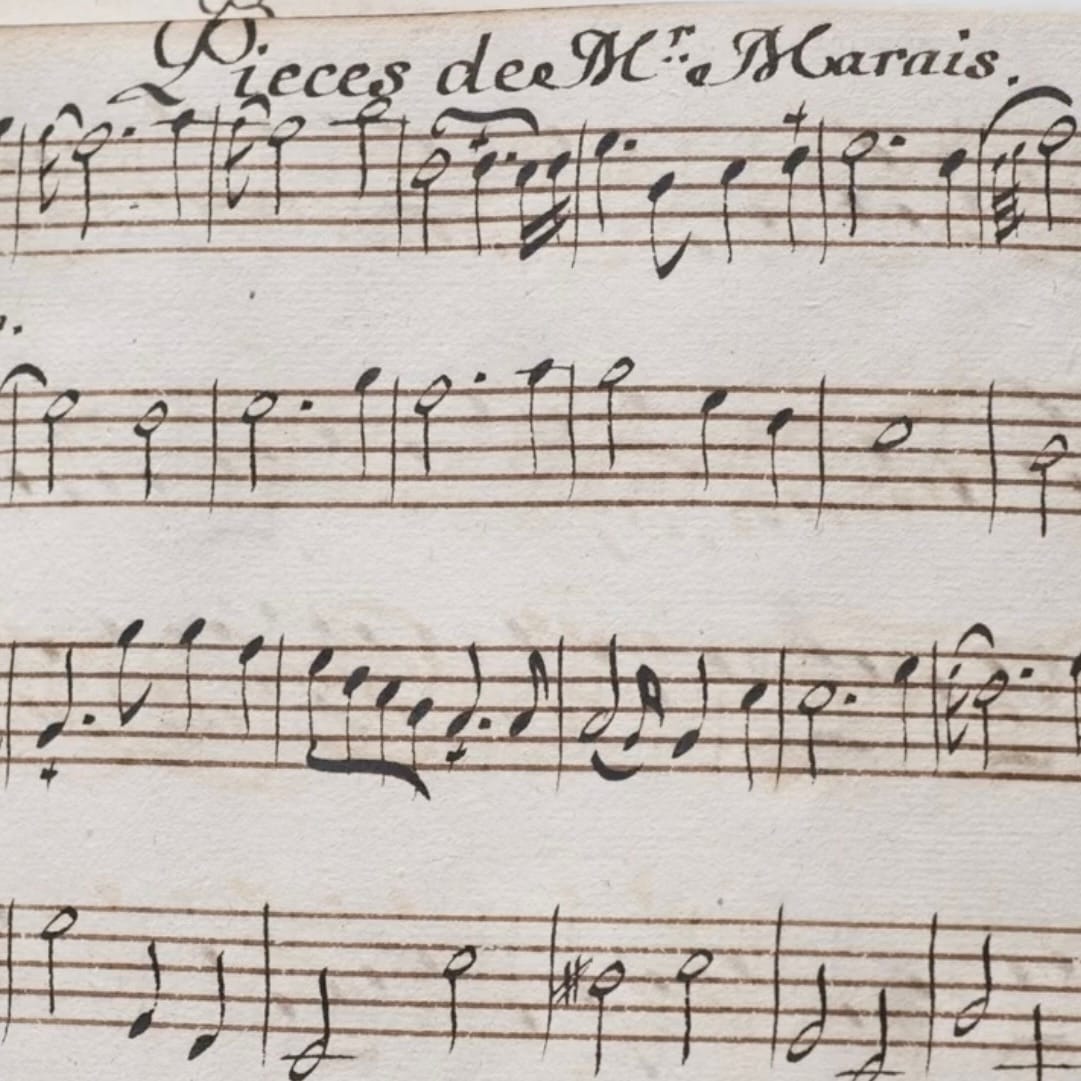 Pieces de Mr. Marais.